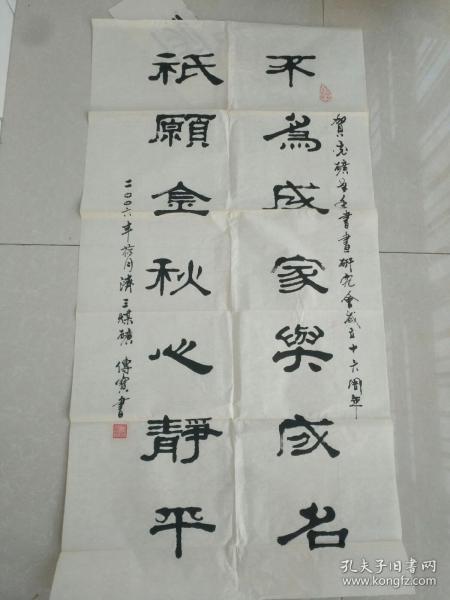 不為成家與成名
祇願金秋心靜平
賀兗礦老年書畫研究會成立十六周年
二〇〇六年於同濟三煤礦 傳寶書
孔夫子旧书网
www.kongfz.com